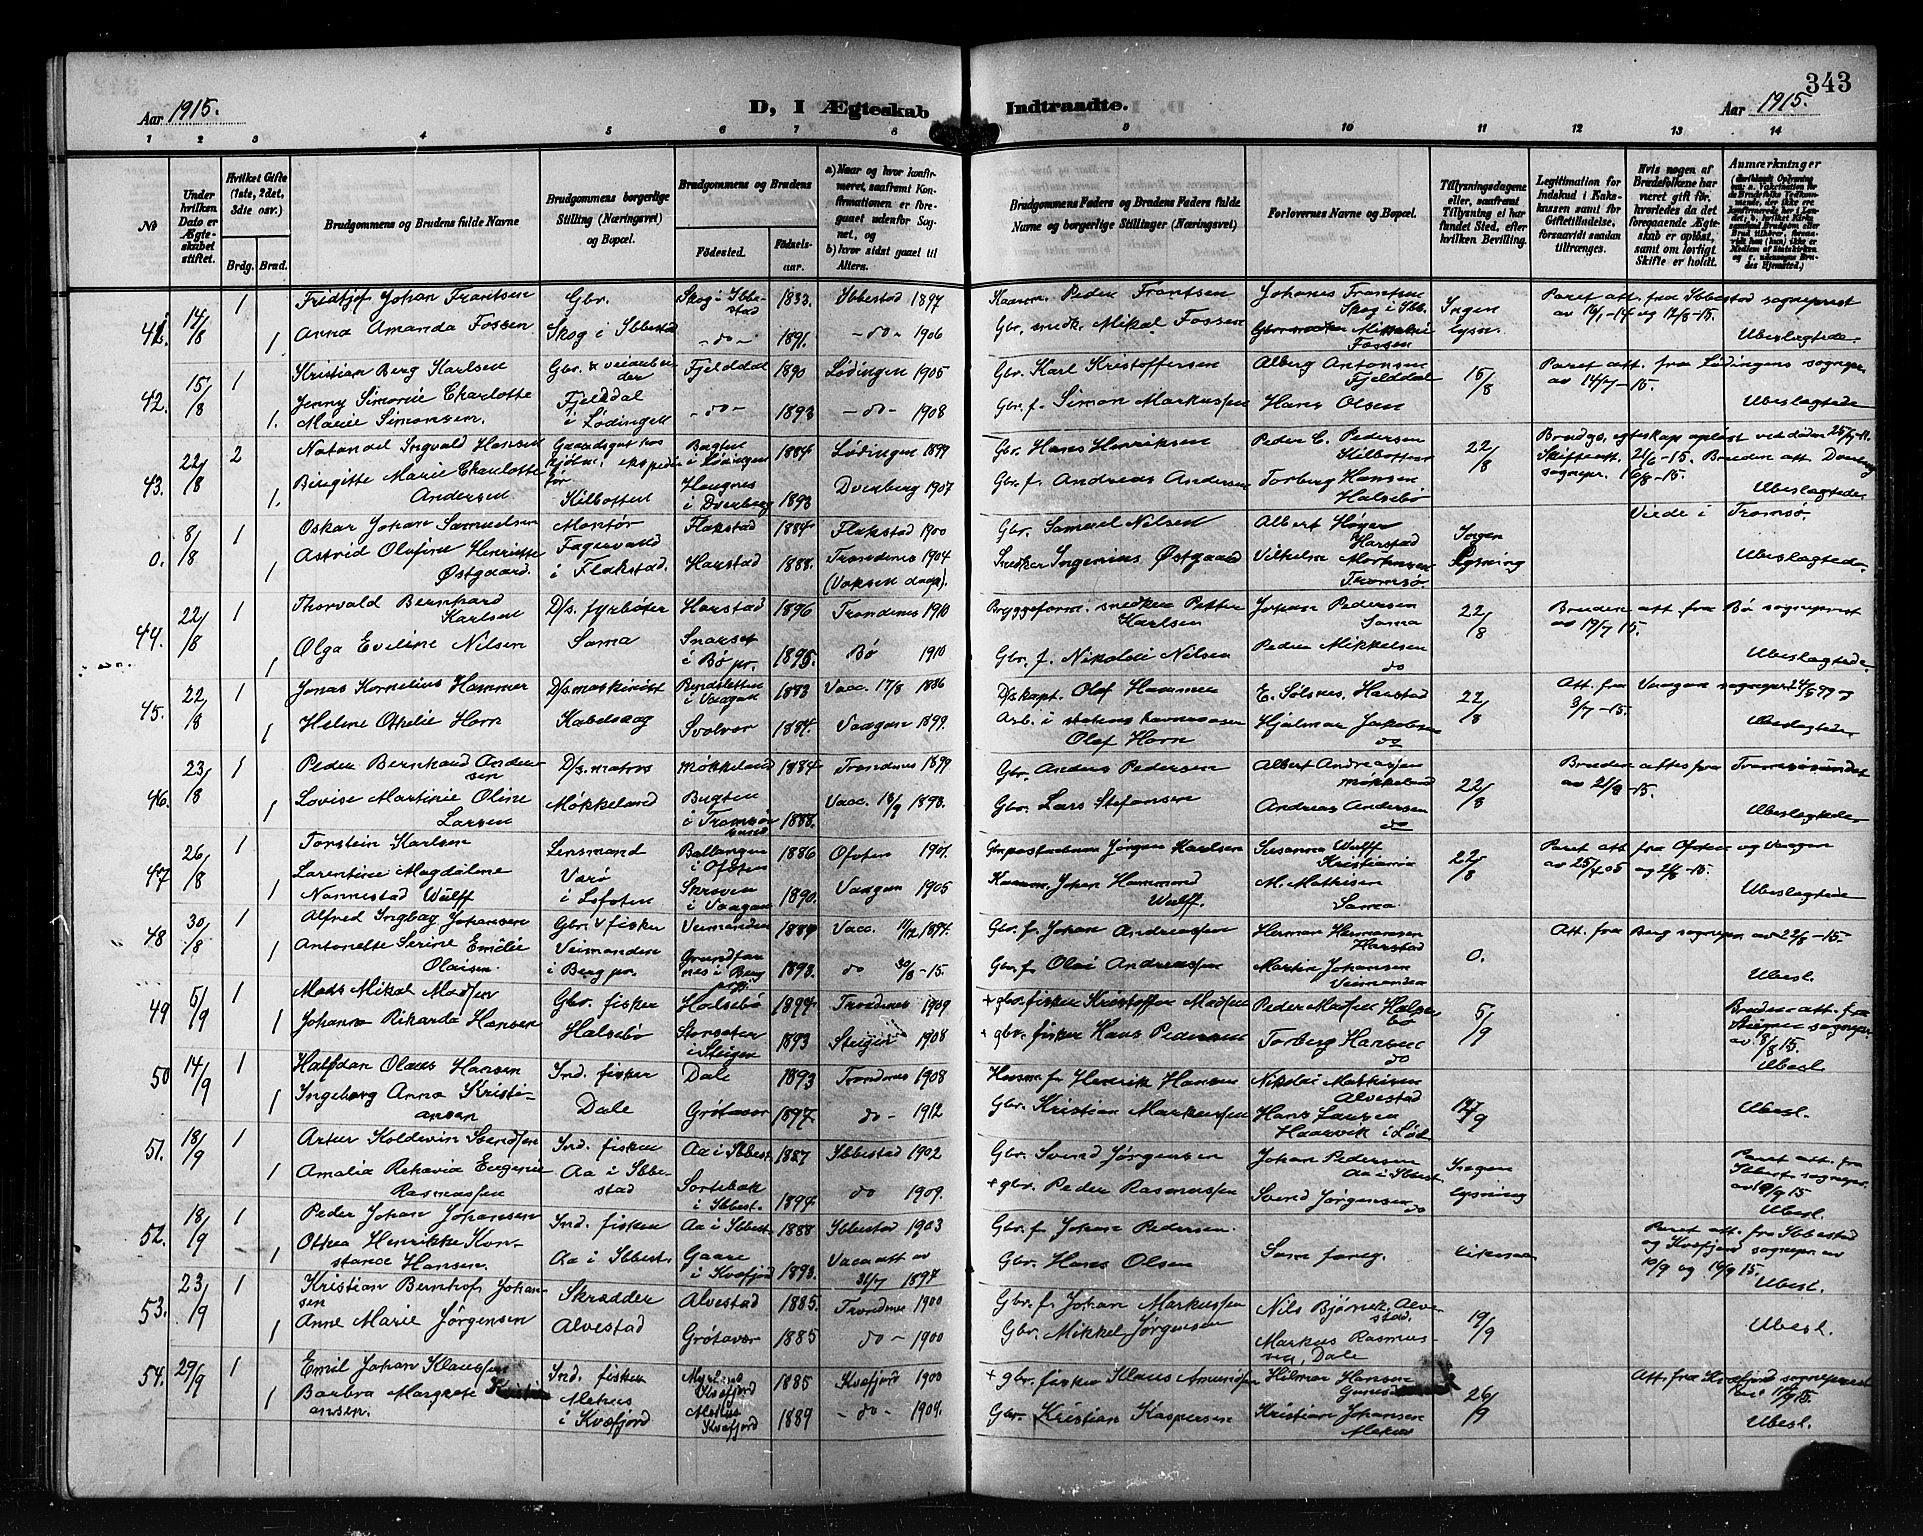 343
Aar 1915.
D, I Ægteskab Indtraadte.
Aar 1915.
1 2 3 4 5 6 7 8 9 10 11 12 13 14
No
Under hvilken Dato er Ægteskabet stiftet.
Hvilket Gifte (1ste, 2det, 3die osv.)
Brdg. Brud.
Brudgommens og Brudens fulde Navne
Brudgommens borgerlige Stilling (Næringsvei) og Bopæl.
Brudgommens og Brudens
Fødested. Fødselsaar.
a) Naar og hvor konfirmeret, saafremt Konfirmationen er foregaaet udenfor Sognet, og
b) hvor sidst gaaet til Alters.
Brudgommens Faders og Brudens Faders fulde Navne og borgerlige Stillinger (Næringsvei)
Forlovernes Navne og Bopæl.
Tillysningsdagene eller, saafremt Tillysning ei har fundet Sted, efter hvilken Bevilling.
Legitimation for Indskud i Enkekassen samt for Giftetilladelse, forsaavidt saadan tiltrænges.
Hvis nogen af Brudefolkene har været gift før, hvorledes da det foregaaende Ægteskab er opløst, samt om lovligt Skifte er holdt.
Anmærkninger
14/8 1 Fridtjof Johan Frantsen Gbr. Skog i Ibbestad 1883. Ibbestad 1897 Peder Frantsen Johanes Frantsen Skog i Ibb. Ingen Paret att. fra Ibbestad sogneprest
1 Anna Amanda Fossen Skog i Ibbestad -do- 1891. -do- 1906 Gbr. snedk. Mikal Fossen Fossen lysn. av 16/1-14 og 12/8-15. Ubeslægtede.
42. 15/8 1 Kristian Berg Karlsen Gbr. & veiarbeider Fjelddal 1890 Lødingen 1905 Gbr. Karl Kristoffersen Albert Antonsen Fjelddal 15/8 Paret att. fra Lødingens sognepr.
1. Jenny Simonie Charlotte Marie Simonsen. Fjelddal i Lødingen -do- 1893 -do- 1908 Gbr. f. Simon Markussen Hans Olsen av 14/7-15. Ubeslægtede
43. 22/8 2 Natanael Ingvald Hansen 1884 Lødingen 1899 Gbr. Hans Henriksen Peder C. Pedersen Kilbotten 22/8 Brudg. egteskap opløst ved døden
1. Birgitte Marie Charlotte Andersen Kilbotten Haugnes i Dverberg 1893 Dverberg 1907 Gbr. f. Andreas Andersen Torberg Hansen Halsebø Skifteatt. 21/6-15. Bruden att. Dverberg sognepr. 16/8-15. Ubeslægtede.
0. 8/8 1 Oskar Johan Samuelsen Montør Flakstad 1884. Flakstad 1900 Gbr. Samuel Nilsen Albert Høyer Harstad Ingen Viede i Tromsø.
1 Astrid Olufine Henriette Østgaard. Fagervand i Flakstad. Harstad 1888. Trondenes 1904 (Voksen daap). Snedker Ingenius Østgaard Vilhelm Mortensen Tromsø lysning Ubeslægtede.
44. 22/8 1 Thorvald Bernhard Karlsen D/s. fyrbøter Harstad 1896 Trondenes 1910 Bryggeform. snedker Petter Karlsen Johan Pedersen Sama 22/8 Bruden att. fra Bø sogneprest
1 Olga Eveline Nilsen Sama i Bø pr. 1895. Bø 1910 Gbr. f. Nikolai Nilsen Peder Mikkelsen do av 19/7 15. Ubeslægtede.
45. 22/8 1 Jonas Kornelius Hammer D/s. maskinist i Vaagan 1883 Vacc. 17/8 1886 D/s. kapt. Olaf Hammer E. Solsnes, Harstad 22/8 Att. fra Vaagan sognepr. 24/8 99 og
1 Helene Othelie Horn Kabelvaag Svolvær 1884. Vaagan 1899. Arb. i statens havnevæsen Olaf Horn Hjalmar Jakobsen do 3/7-15. Ubeslægtede
46. 23/8 1 Peder Bernhard Andersen D/s. matros Møkkeland 1884. Trondenes 1899 Gbr. Anders Pedersen Albert Andreassen Møkkeland 22/8 Bruden attest fra Tromsøsundet
1 Lovise Martinie Oline Larsen Møkkeland Bugten i Tromsøsund 1888. Vacc. 18/9 1893. Gbr. Lars Stefansen Andreas Andersen do av 21/8-15. Ubeslægtede.
47 26/8 1 Torstein Karlsen Lensmand Ballangen i Ofoten 1886 Ofoten 1901. Jørgen Karlsen Susanna Wulff Kristiania 22/8 Paret att. fra Ofoten og Vaagan
1 Larentine Magdalene Normestad Wulff Værø i Lofoten Skroven i Vaagan 1890. Vaagan 1905 Kaarm. Johan Hammond Wulff. M. Mathisen Sama av 25/4 05 og 2/8-15. Ubeslægtede
48 30/8 1 Alfred Ingbag Johansen Gbr. & fisker Veimanden 1884 Vacc. 11/12 1884. Gbr. f. Johan Andreassen Herman Hermansen Harstad 0. Att. fra Berg sognepr. av 22/8-15.
1 Antonette Serine Emilie Olaisen. Veimanden i Berg pr. i Berg 1893. do 30/8-15. Gbr. f. Olai Andreassen Martin Johansen Veimanden Ubesl.
49 5/9 1 Mads Mikal Madsen Gbr. fisker Halsebø 1894. Trondenes 1909 + gbr. fisker Kristoffer Madsen Peder Madsen Halsebø 5/9 Bruden att. fra
1 Johanna Rikarda Hansen Halsebø i Steigen 1893 Steigen 1908 + gbr. fisker Hans Pedersen Torberg Hansen do Steigen sognepr. av 8/8 15. Ubesl.
50 14/9 1 Halfdan Olaus Hansen Ind. fisker Dale 1893 Trondenes 1908 Husm. f. Henrik Hansen Nikolai Mathisen Alvestad
1 Ingeborg Anna Kristiansen Dale Grøtavær 1897. do - 1912 Gbr. Kristian Markussen Hans Larsen Haarvik i Lød. Ubesl.
51. 18/9 1 Artur Koldevin Svendsen Ind. fisker Aa i Ibbest. 1887 Ibbestad 1902 Gbr. Svend Jørgensen Johan Pedersen Aa i Ibbest. Ingen Paret att. fra
1 Amalia Rekavia Eugenie Rasmussen Aa i Ibbestad i Ibbest. 1894. do 1909. + gbr. Peder Rasmussen Svend Jørgensen do lysning Ibbest. sognepr. av 9/9 15 Ubesl.
52. 18/9 1 Peder Johan Johansen Ind. fisker Aa i Ibbest. 1888 Ibbestad 1903 Gbr. f. Johan Pedersen. Paret att. fra Ibbestad
1 Othea Henrikke Konstance Hansen. Aa i Ibbest. Gaare i Kvæfjord 1893. Vaca att av 1897 Gbr. Hans Olsen Som foreg. likesaa og Kvæfjord sognepr. av 10/9 og 16/9 15. Ubesl.
53. 23/9 1 Kristian Bernhof Johansen Skrædder Alvestad 1885. Trondenes 1900 Gbr. f. Johan Markussen Nils Bjørnek. Alvestad. 19/9
1 Anne Marie Jørgensen Alvestad Grøtavær 1885 do - 1900 Gbr. Mikkel Jørgensen Markus Rasmussen, Dale Ubesl.
54. 29/9 1 Emil Johan Klaussen Ind. fisker Kvæfjord 1885 Kvæfjord 1900 + gbr. fisker Klaus Hilmar Hansen 26/9 Att. fra Kvæfjord sogneprest
1 Barbra Margrete Kristiansen. i Kvæfjord Kvæfjord 1889 -do- 1904. Gbr. Kristian Kaspersen Kristian Johansen Ubesl.